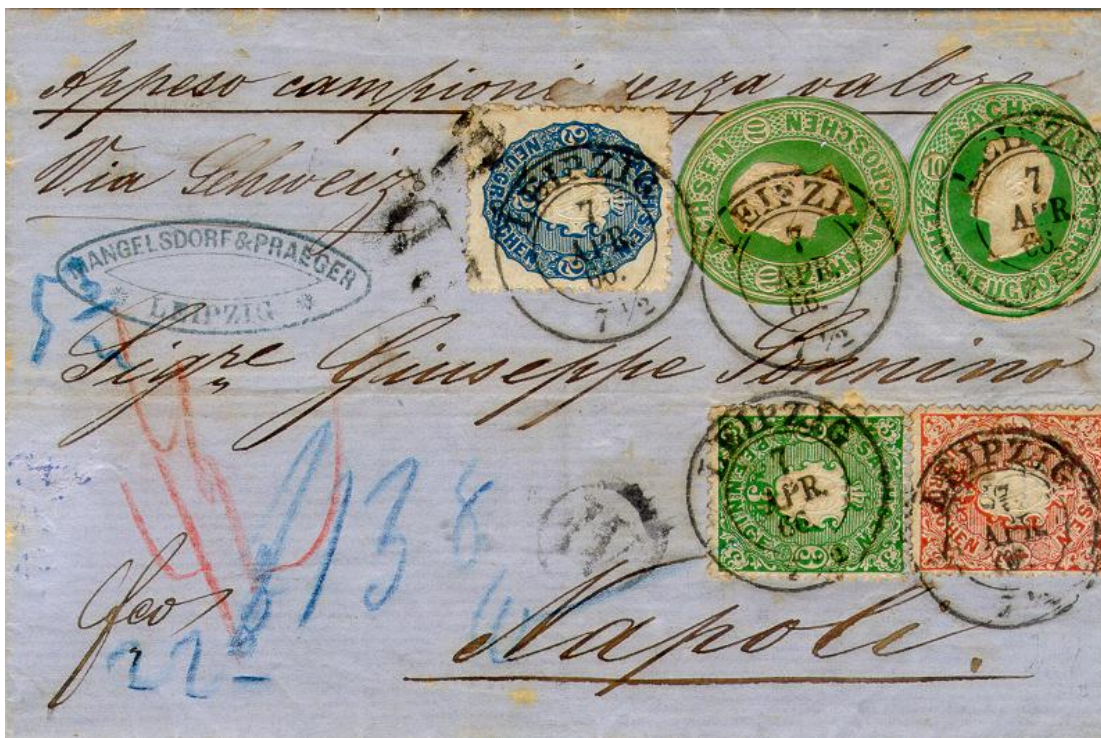 Appeso campioni senza valore
Via Schweiz
MANGELSDORF & PRAEGER
LEIPZIG
2 NEUGROSCHEN
SACHSEN
LEIPZIG
7
APR.
66.
7 ½
SACHSEN
ZEHN NEUGROSCHEN
10
LEIPZIG
7
APR.
66.
7 ½
SACHSEN
ZEHN NEUGROSCHEN
10
LEIPZIG
7
APR.
66.
Sigre Giuseppe Sonnino
3 PFENNIGE
SACHSEN
LEIPZIG
7
APR.
66.
SACHSEN
LEIPZIG
7
APR.
66.
7 ½
138
fco
22
Napoli.